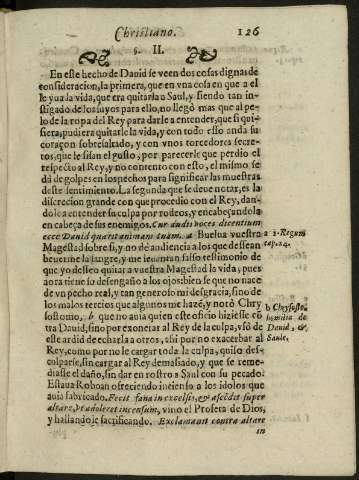 Christiano. 126
§. II.
En este hecho de Dauid se veen dos cosas dignas de
consideracion, la primera, que en vna cosa en que a el
le yua la vida, que era quitarla a Saul, y siendo tan in-
stigado de los suyos para ello, no llegó mas que al pe-
lo de la ropa del Rey para darle a entender, que si qui-
siera, pudiera quitarle la vida, y con todo esso anda su
coraçon sobresaltado, y con vnos torcedores secre-
tos, que le sisan el gusto, por parecerle que perdio el
respecto al Rey, y no contento con esto, el mismo se
dá de golpes en los pechos para significar las muestras
deste sentimiento. La segunda que se deue notar, es la
discrecion grande con que procedio con el Rey, dan-
dole a entender su culpa por rodeos, y encabeçandola
en cabeça de sus enemigos. Cur audis voces dicentium
ecce Dauid quærit animam tuam. a Buelua vuestra
Magestad sobre si, y no dé audiencia a los que dessean
beuerme la sangre, y me leuantan falso testimonio de
que yo desseo quitar a vuestra Magestad la vida, pues
aora tiene su desengaño a los ojos: bien se que no nace
de vn pecho real, y tan generoso mi desgracia, sino de
los malos tercios que algunos me hazẽ, y notó Chry
sostomo, b que no auia quien este oficio hiziesse cõ
tra Dauid, sino por exonerar al Rey de la culpa, vsó de
este ardid de echarla a otros, assi por no exacerbar al
Rey, como por no le cargar toda la culpa, quiso des-
culparse, sin cargar al Rey demasiado, y que se reme-
diasse el daño, sin dar en rostro a Saul con su pecado.
Estaua Roboan ofreciendo incienso a los idolos que
auia fabricado. Fecit fana in excelsis, & ascẽdit super
altare, vt adoleret incensum, vino el Profeta de Dios,
y hallandole sacrificando. Exclamauit contra altare
in
a 1. Regum
cap. 24.
b Chrysosto.
homilia de
Dauid, &
Saule.